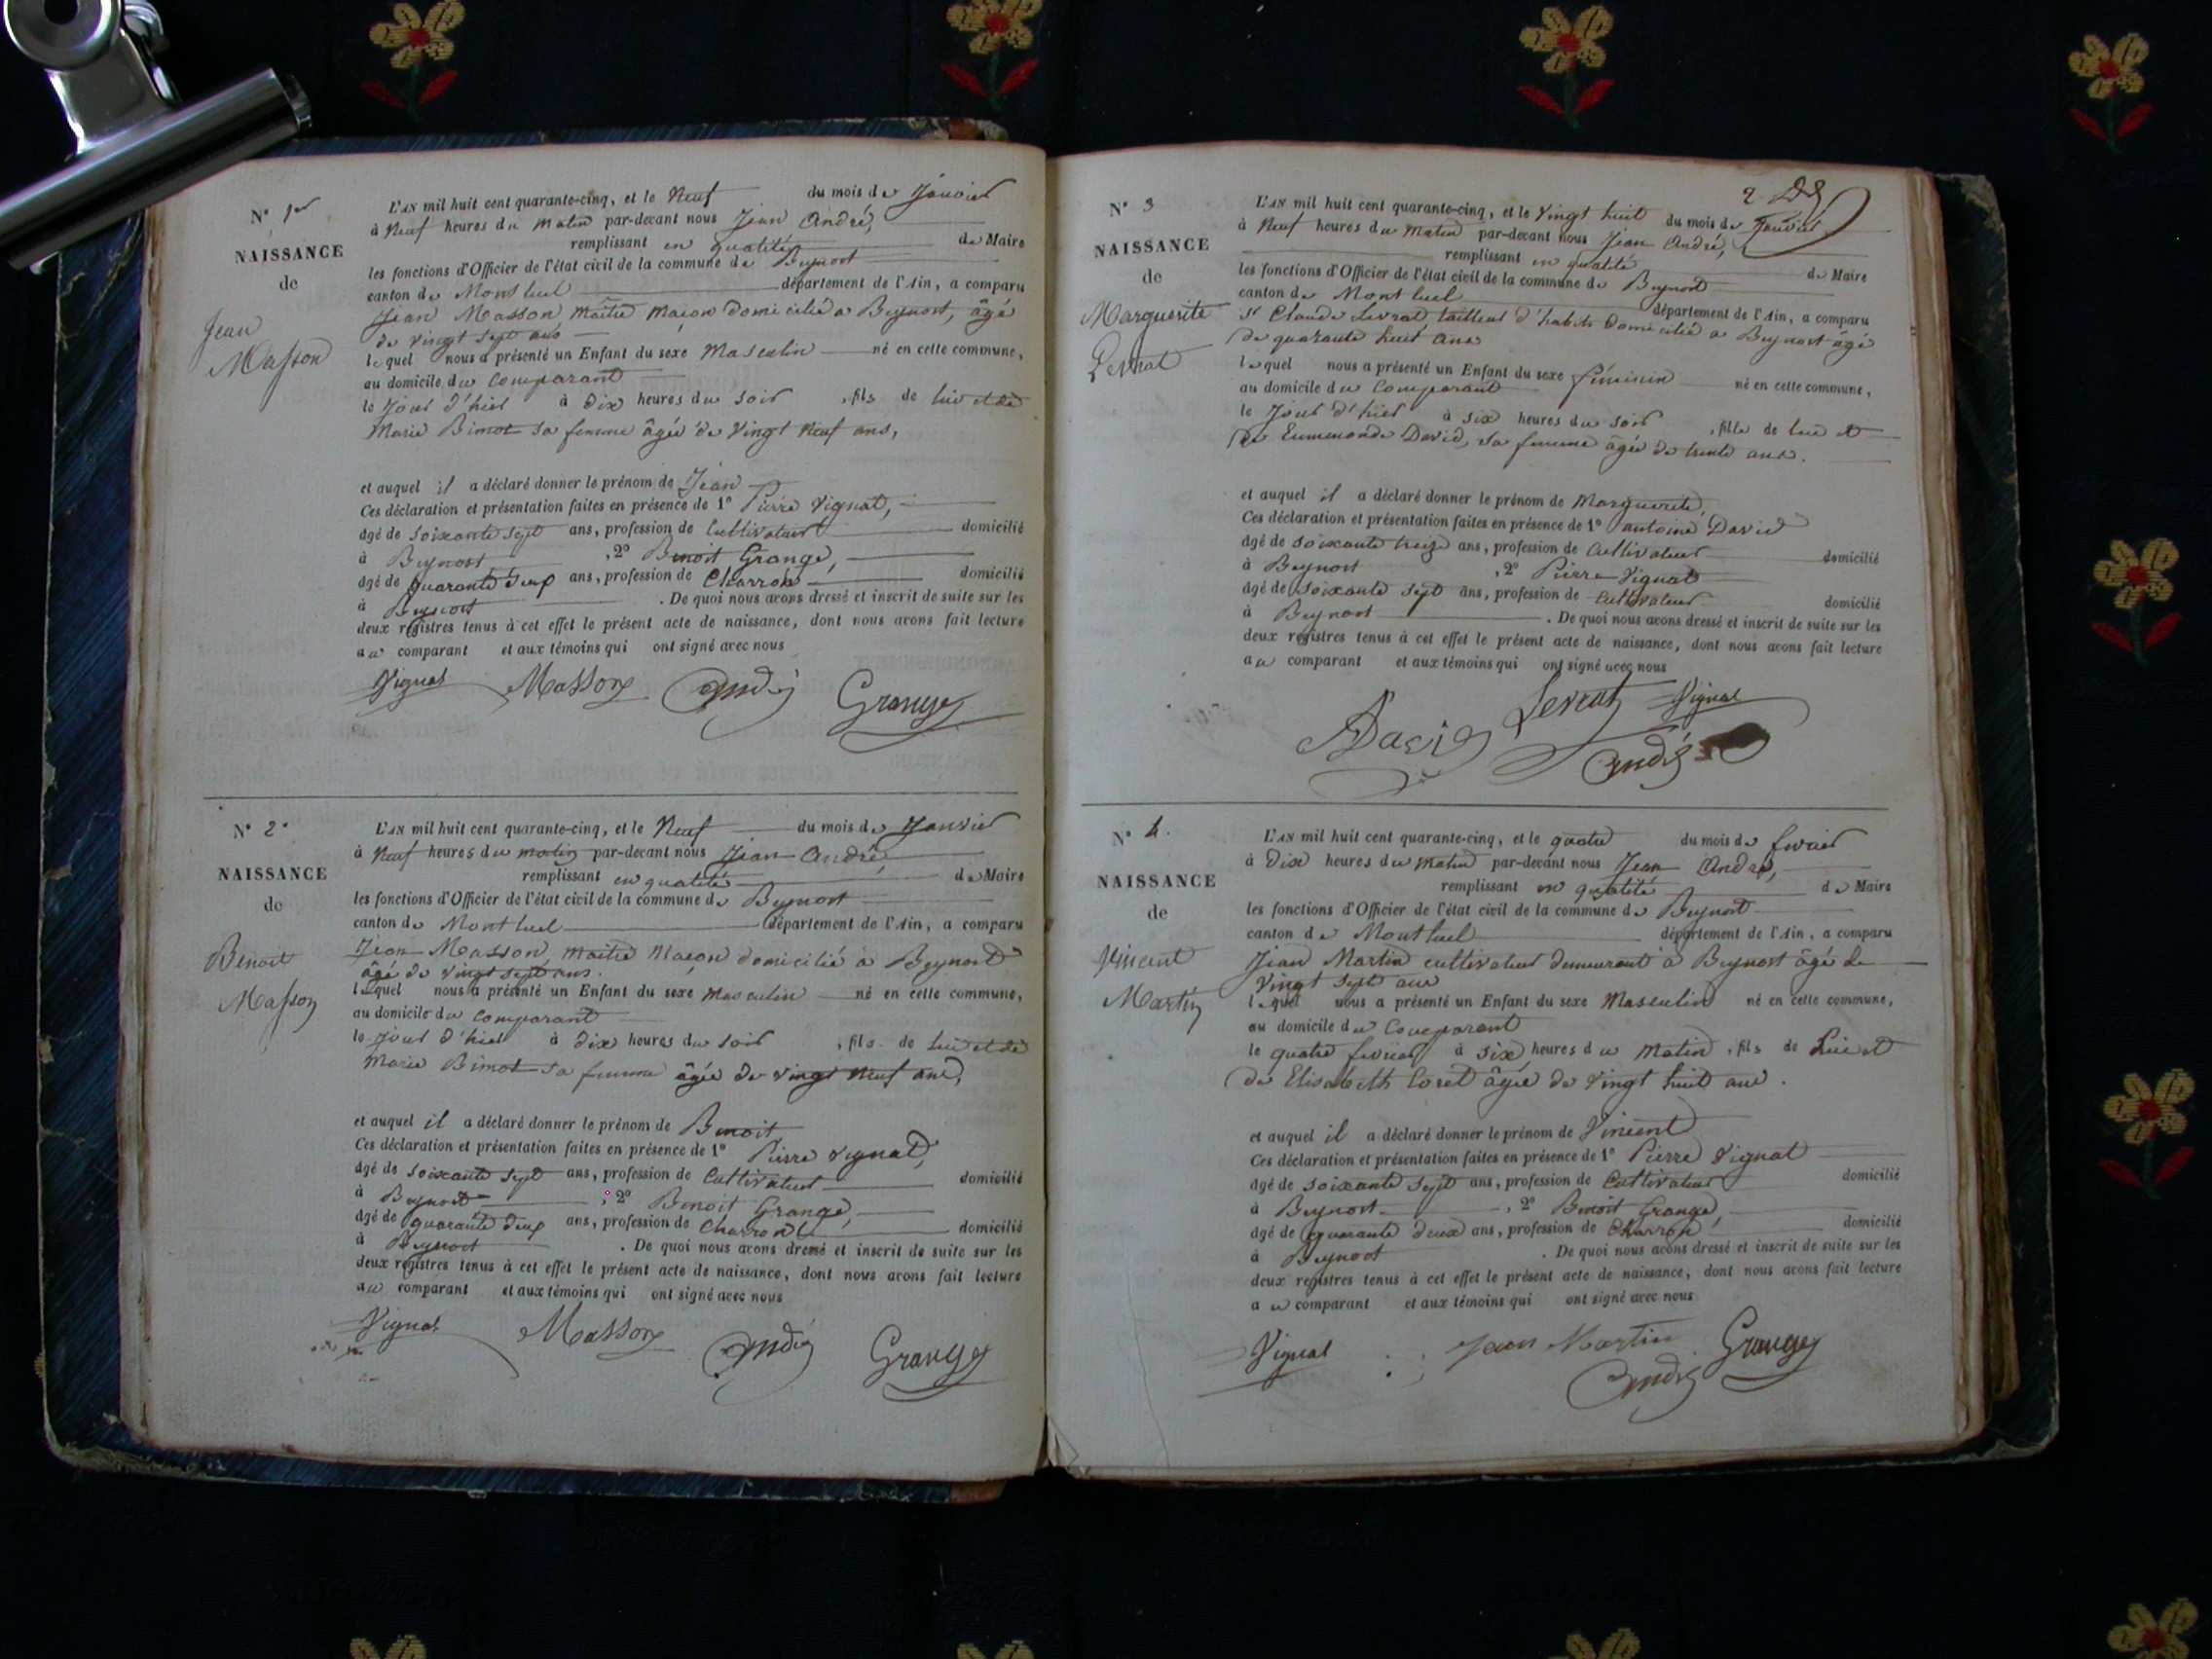 N° 1er
NAISSANCE
de
Jean
Masson
L'AN mil huit cent quarante-cinq, et le Neuf du mois de Janvier
à Neuf heures du matin par-devant nous Jean André,
remplissant en qualité de Maire
les fonctions d'Officier de l'état civil de la commune de Beynost
canton de Montluel département de l'Ain, a comparu
Jean Masson maitre maçon domicilié a Beynost, âgé
de vingt sept ans
lequel nous a présenté un Enfant du sexe Masculin né en cette commune,
au domicile du comparant
le jour d'hier à dix heures du soir , fils de lui et de
Marie Bimot sa femme âgée de vingt neuf ans,
et auquel il a déclaré donner le prénom de Jean
Ces déclaration et présentation faites en présence de 1° Pierre Vignat,
âgé de soixante sept ans, profession de Cultivateur domicilié
à Beynost , 2° Benoit Grange,
âgé de quarante deux ans, profession de Charron domicilié
à Beynost . De quoi nous avons dressé et inscrit de suite sur les
deux registres tenus à cet effet le présent acte de naissance, dont nous avons fait lecture
au comparant et aux témoins qui ont signé avec nous
Vignat Masson André Grange
N° 2e
NAISSANCE
de
Benoit
Masson
L'AN mil huit cent quarante-cinq, et le Neuf du mois de Janvier
à Neuf heures du matin par-devant nous Jean André,
remplissant en qualité de Maire
les fonctions d'Officier de l'état civil de la commune de Beynost
canton de Montluel département de l'Ain, a comparu
Jean Masson, maitre maçon domicilié à Beynost
âgé de vingt sept ans.
lequel nous a présenté un Enfant du sexe masculin né en cette commune,
au domicile du comparant
le jour d'hier à dix heures du soir , fils de lui et de
Marie Bimot sa femme âgée de vingt neuf ans,
et auquel il a déclaré donner le prénom de Benoit
Ces déclaration et présentation faites en présence de 1° Pierre Vignat,
âgé de soixante sept ans, profession de Cultivateur domicilié
à Beynost , 2° Benoit Grange,
âgé de quarante deux ans, profession de Charron domicilié
à Beynost . De quoi nous avons dressé et inscrit de suite sur les
deux registres tenus à cet effet le présent acte de naissance, dont nous avons fait lecture
au comparant et aux témoins qui ont signé avec nous
Vignat Masson André Grange
2
N° 3
NAISSANCE
de
Marguerite
Levrat
L'AN mil huit cent quarante-cinq, et le vingt huit du mois de Janvier
à Neuf heures du matin par-devant nous Jean André,
remplissant en qualité de Maire
les fonctions d'Officier de l'état civil de la commune de Beynost
canton de Montluel département de l'Ain, a comparu
Sr Claude Levrat tailleur d'habits domicilié a Beynost âgé
de quarante huit ans
lequel nous a présenté un Enfant du sexe féminin né en cette commune,
au domicile du comparant
le jour d'hier à six heures du soir , fille de lui et
de Eunemonde David, sa femme âgée de trente ans.
et auquel il a déclaré donner le prénom de Marguerite,
Ces déclaration et présentation faites en présence de 1° antoine David
âgé de soixante treize ans, profession de Cultivateur domicilié
à Beynost , 2° Pierre Vignat
âgé de soixante sept ans, profession de Cultivateur domicilié
à Beynost . De quoi nous avons dressé et inscrit de suite sur les
deux registres tenus à cet effet le présent acte de naissance, dont nous avons fait lecture
au comparant et aux témoins qui ont signé avec nous
David Levrat Vignat
André
N° 4.
NAISSANCE
de
Vincent
Martin
L'AN mil huit cent quarante-cinq, et le quatre du mois de fevrier
à Dix heures du matin par-devant nous Jean André,
remplissant en qualité de Maire
les fonctions d'Officier de l'état civil de la commune de Beynost
canton de Montluel département de l'Ain, a comparu
Jean Martin cultivateur demeurant à Beynost âgé de
vingt sept ans
lequel nous a présenté un Enfant du sexe Masculin né en cette commune,
au domicile du Comparant
le quatre fevrier à six heures du matin , fils de Lui et
de Elisabeth Coret âgée de vingt huit ans.
et auquel il a déclaré donner le prénom de Vincent
Ces déclaration et présentation faites en présence de 1° Pierre Vignat
âgé de soixante sept ans, profession de Cultivateur domicilié
à Beynost , 2° Benoit Grange,
âgé de quarante deux ans, profession de Charron domicilié
à Beynost . De quoi nous avons dressé et inscrit de suite sur les
deux registres tenus à cet effet le présent acte de naissance, dont nous avons fait lecture
au comparant et aux témoins qui ont signé avec nous
Vignat Jean Martin Grange
André